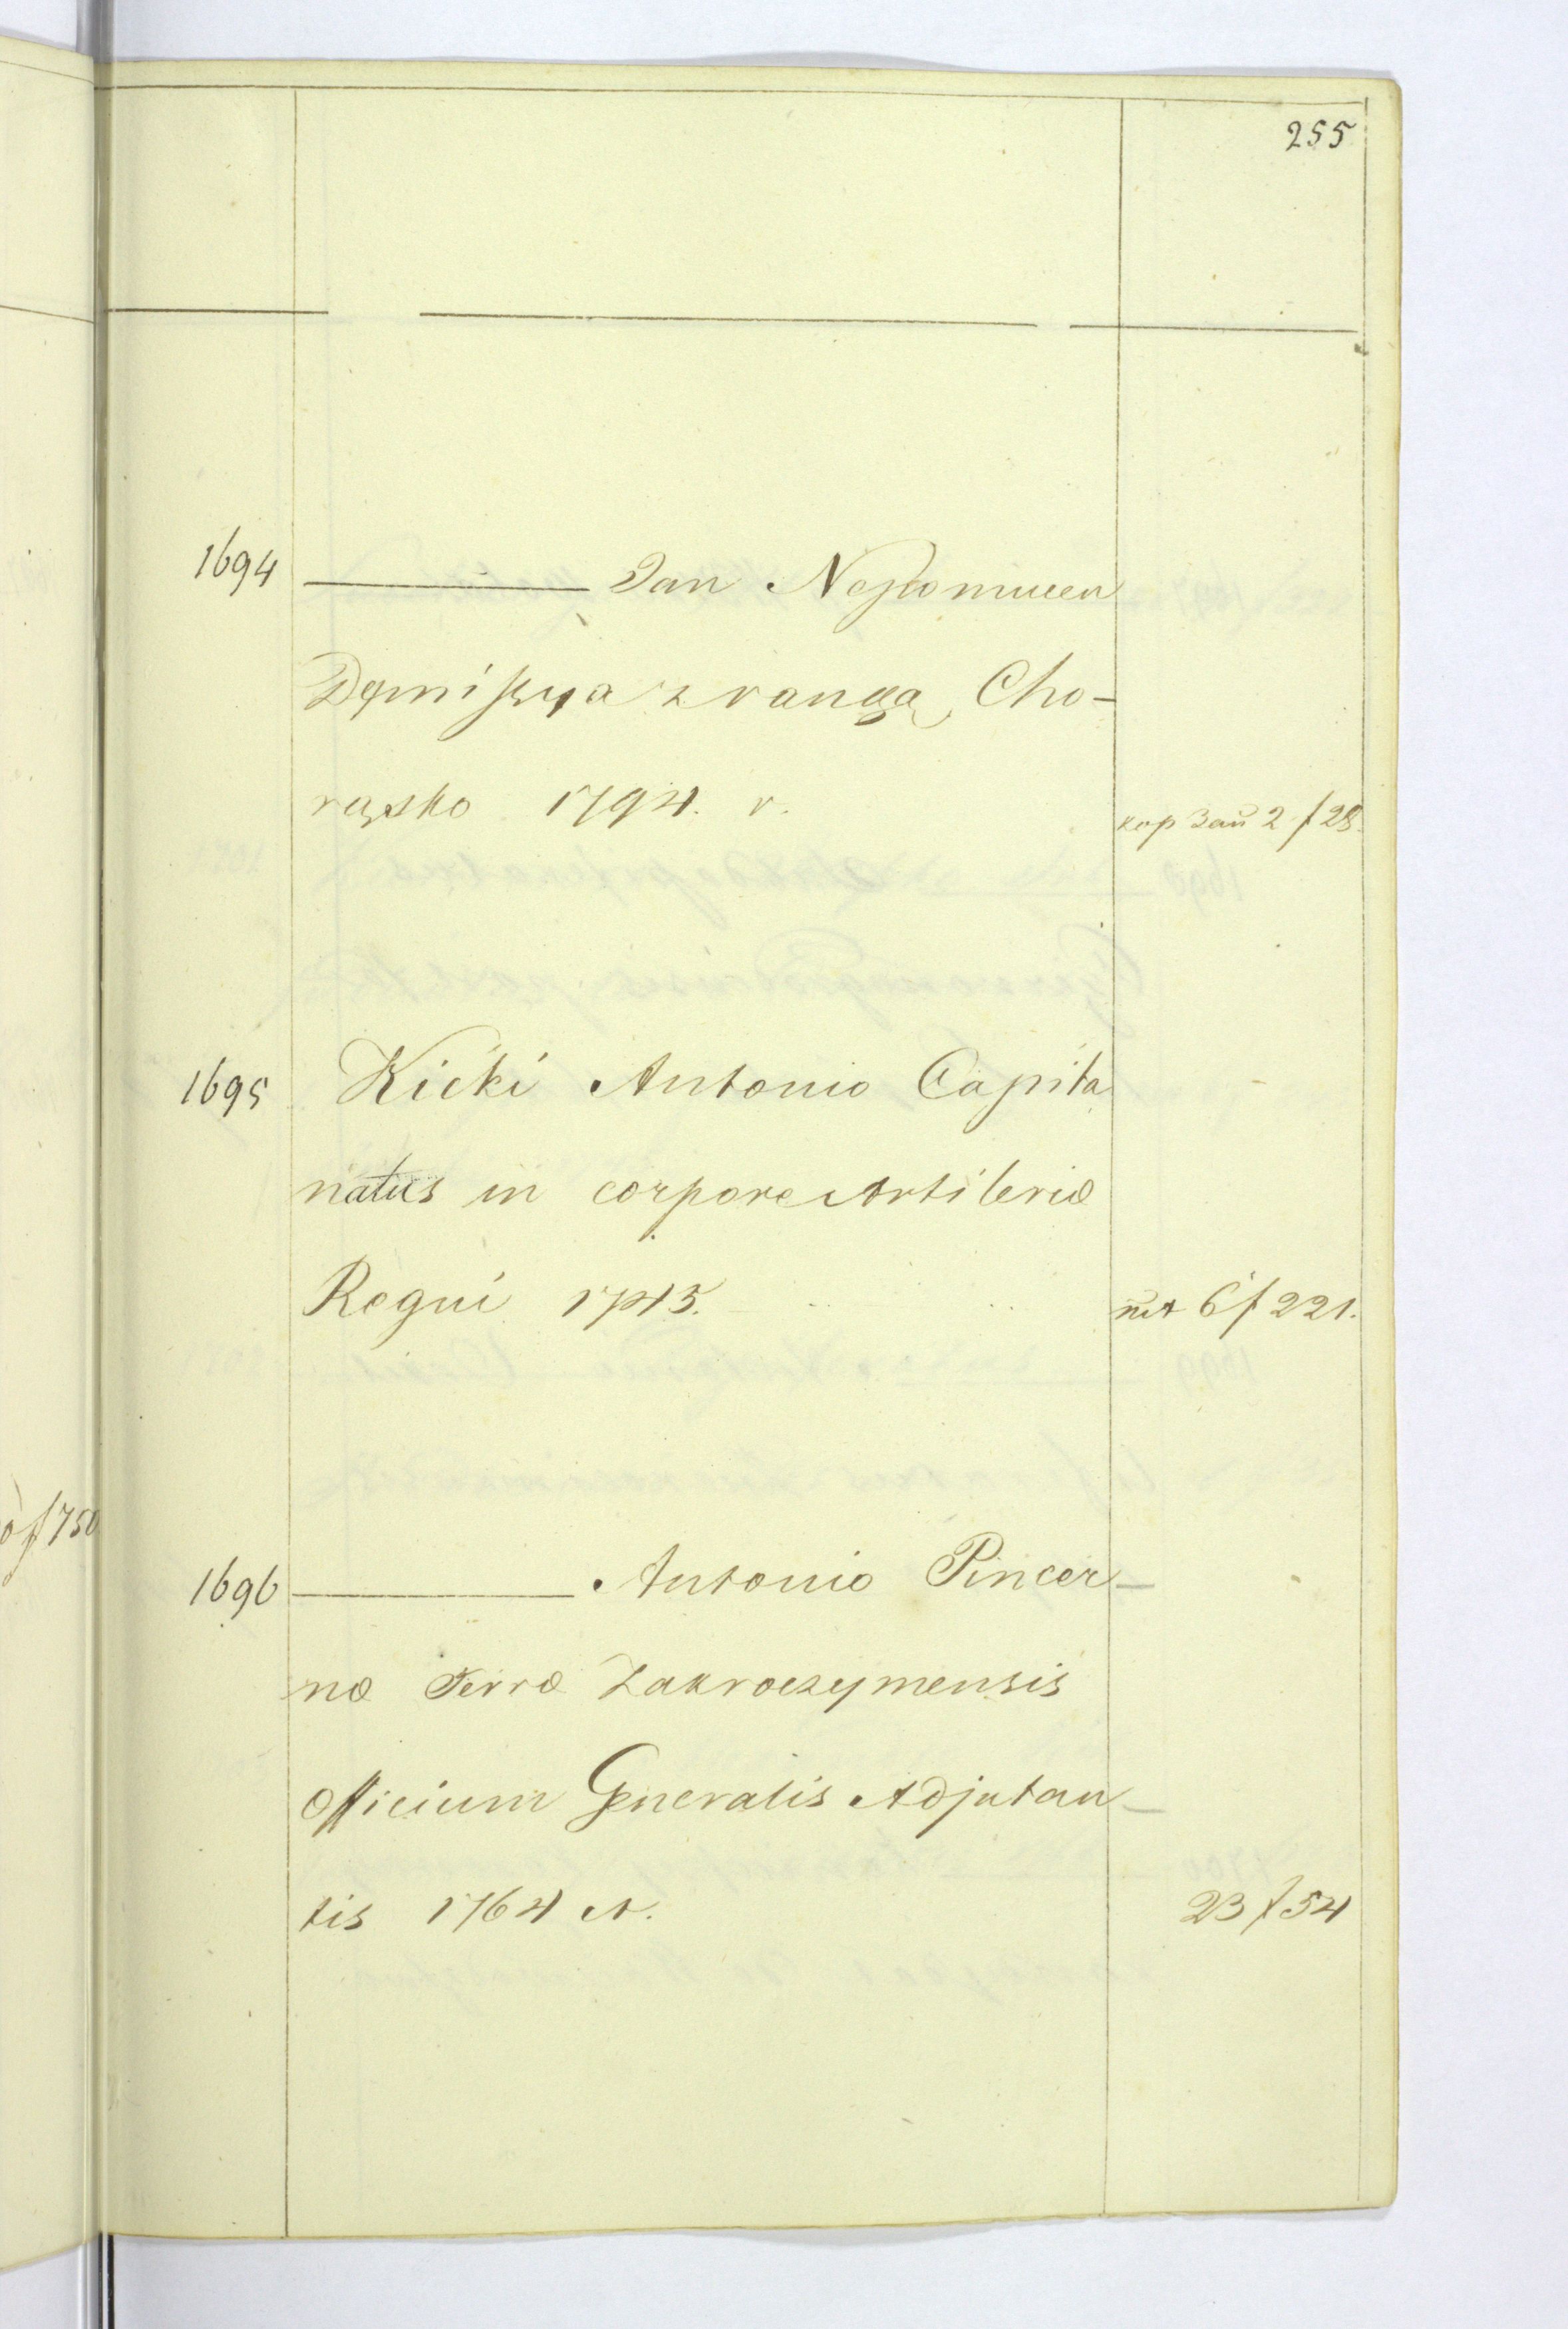 255
1694 ——— Jan Nepomucen
Dymissya z rangą Cho-
rążko 1794. r. кор Зап 2 f 28.
1695 Kicki Antonio Capita
natus in corpore Artileriæ
Regni 1745. 6 f 221.
1696 ——— Antonio Pincer-
næ Terræ Zakroczymensis
Officium Generalis Adjutan-
tis 1764 A. 23 f 54
f 750